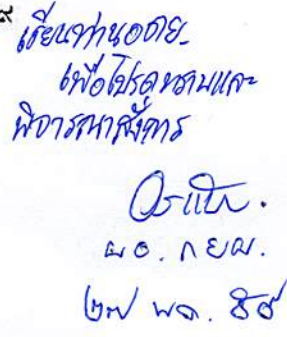 เรียนท่านอดาย.
เพื่อโปรดทราบและ
พิจารณาสั่งการ
ผอ. กยผ.
๒๗ พค. ๕๘